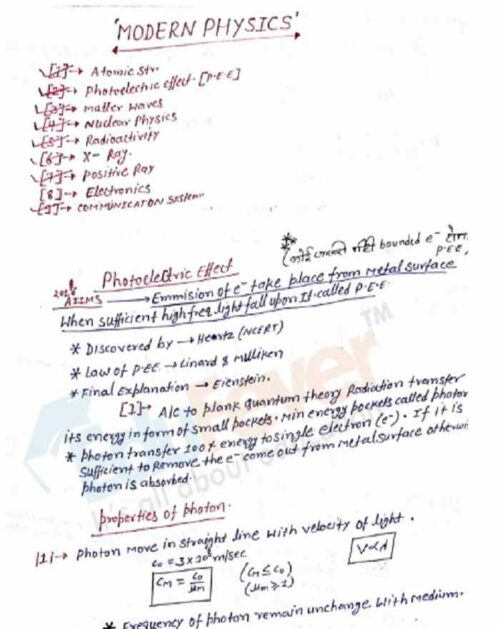 'MODERN PHYSICS'
[1]→ Atomic Str.
[2]→ Photoelectric effect. [P.E.E]
[3]→ Matter Waves
[4]→ Nuclear Physics
[5]→ Radioactivity
[6]→ X-Ray.
[7]→ Positive Ray
[8]→ Electronics
[9]→ COMMUNICATON SYSTEM
नहीं bounded e⁻
P.E.E
Photoelectric Effect
AIIMS → Emmision of e⁻ take place from metal surface
When sufficient high freq. light fall upon It called P.E.E
* Discovered by → Heartz (NCERT)
* Law of P.EE → Linard & Mulliken
* Final Explanation → Eienstein.
[1]→ A/C to plank quantum theory Radiation transfer
its energy in form of small pockets. Min energy pockets called photon
* photon transfer 100% energy to single electron (e⁻). If it is
sufficient to Remove the e⁻ come out from metal surface otherwi
photon is absorbed.
properties of photon.
[1]→ Photon move in straight line with velocity of light.
C₀ = 3×10⁸ m/sec
C_M = C₀/μ_m
(C_M ≤ C₀)
(μ_m ≥ 1)
V∝λ
* Frequency of photon remain unchange with medium.
TM